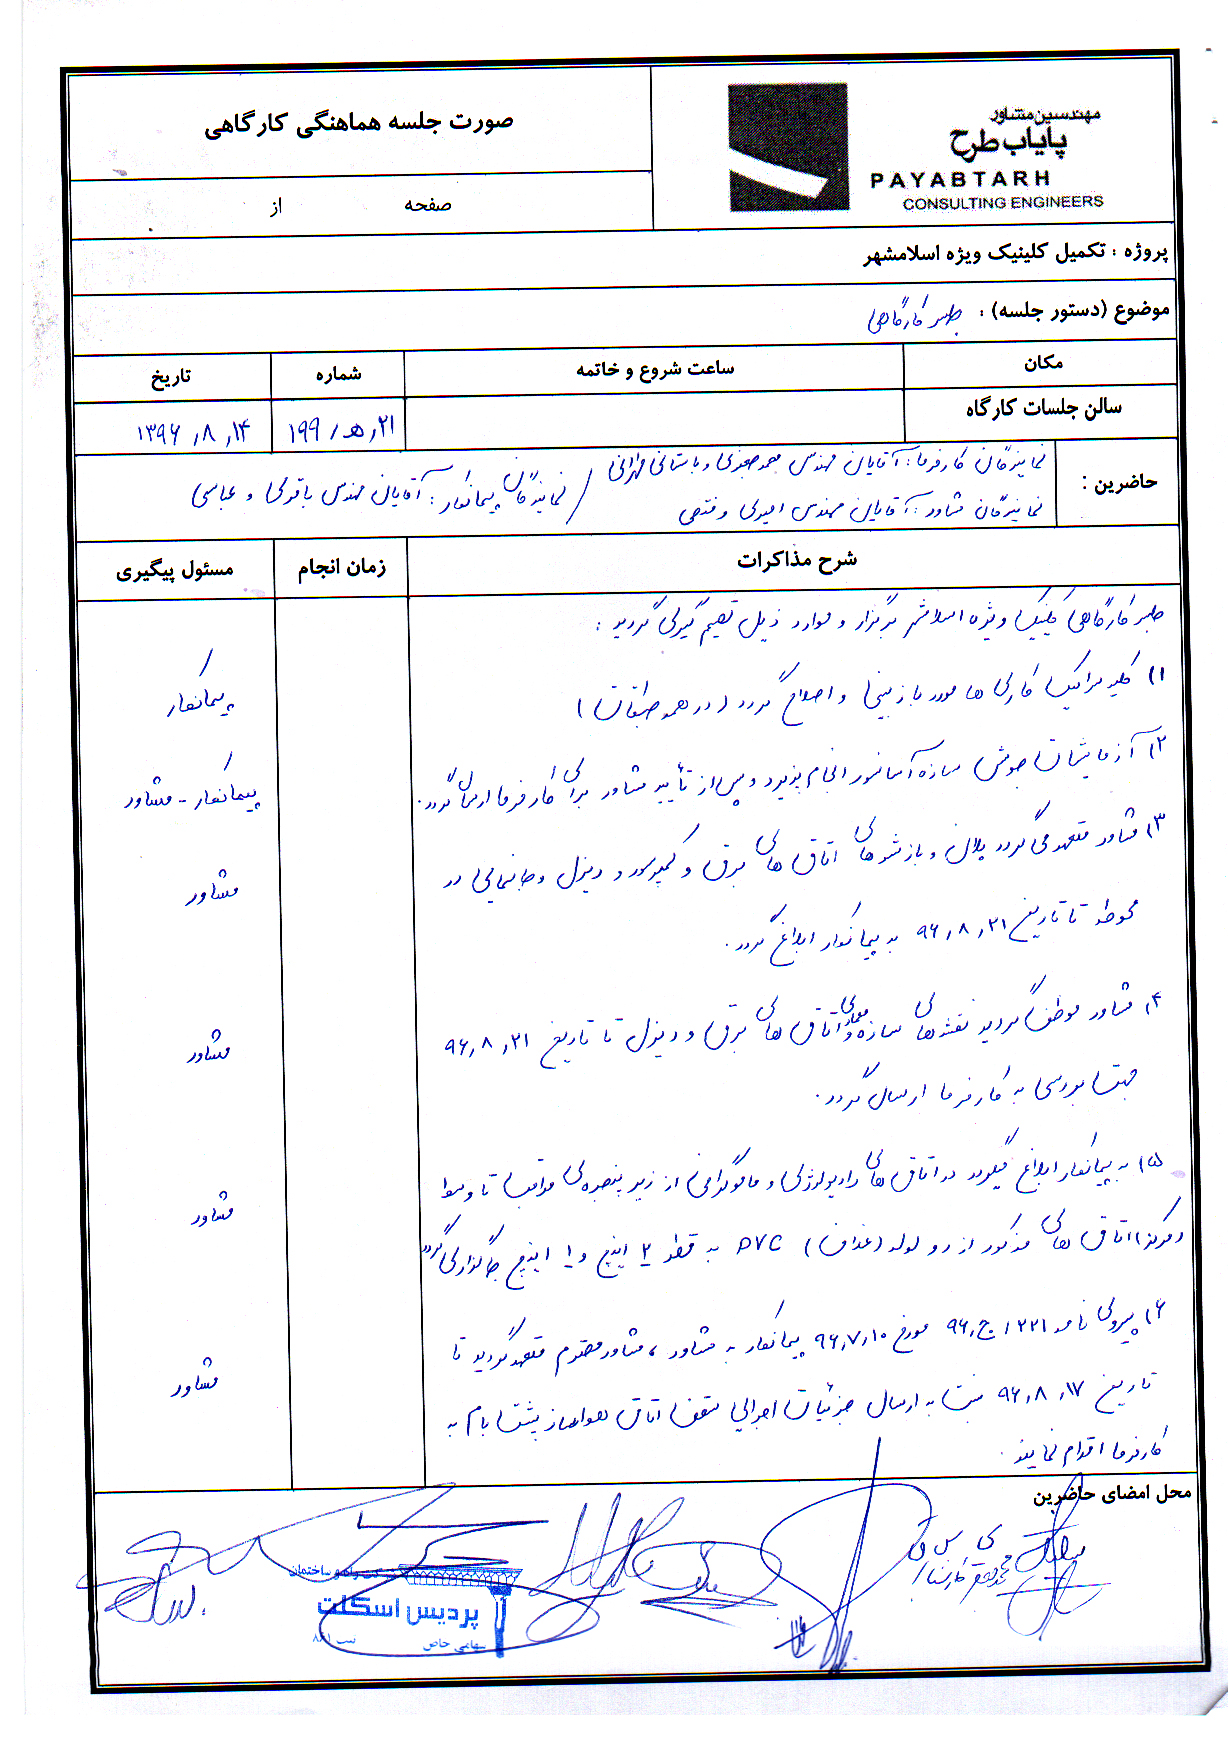 مهندسین مشاور
پایاب طرح
PAYABTARH
CONSULTING ENGINEERS
صورت جلسه هماهنگی کارگاهی
صفحه از
پروژه : تکمیل کلینیک ویژه اسلامشهر
موضوع (دستور جلسه) : جلسه کارگاهی
مکان ساعت شروع و خاتمه شماره تاریخ
سالن جلسات کارگاه ۲۱٫ه‍٫۱۹۹ ۱۳۹۶٫۸٫۱۴
حاضرین :
نمایندگان کارفرما : آقایان مهندس جعفری و باستانی تهرانی
نمایندگان مشاور : آقایان مهندس امیری و فتحی / نمایندگان پیمانکار : آقایان مهندس باقری و عباسی
شرح مذاکرات زمان انجام مسئول پیگیری
جلسه کارگاهی کلینیک ویژه اسلامشهر برگزار و موارد ذیل تصمیم گیری گردید :
۱) کلیه سرامیک کاری ها مورد بازبینی و اصلاح گردد (در همه طبقات) پیمانکار
۲) آزمایشات جوش سازه آسانسور انجام پذیرد و پس از تأیید مشاور برای کارفرما ارسال گردد. پیمانکار - مشاور
۳) مشاور متعهد می گردد پلان و بازشوهای اتاق های برق و کمپرسور و دیزل و جانمایی در مشاور
محوطه تا تاریخ ۹۶٫۸٫۲۱ به پیمانکار ابلاغ گردد.
۴) مشاور موظف گردید نقشه های سازه و معماری اتاق های برق و دیزل تا تاریخ ۹۶٫۸٫۲۱ مشاور
جهت بررسی به کارفرما ارسال گردد.
۵) به پیمانکار ابلاغ میگردد در اتاق های رادیولوژی و ماموگرافی از زیر پنجره ی مراقب تا وسط مشاور
(مرکز) اتاق های مذکور از دو لوله (غلاف) PVC به قطر ۲ اینچ و ۱ اینچ جاگذاری گردد
۶) پیروی نامه ۲۲۱/ج٫۹۶ مورخ ۹۶٫۷٫۱۰ پیمانکار به مشاور ، مشاور محترم متعهد گردید تا مشاور
تاریخ ۹۶٫۸٫۱۷ نسبت به ارسال جزئیات اجرایی سقف اتاق هواساز پشت بام به
کارفرما اقدام نمایند.
محل امضای حاضرین
راه و ساختمان
پردیس اسکلت
سهامی خاص